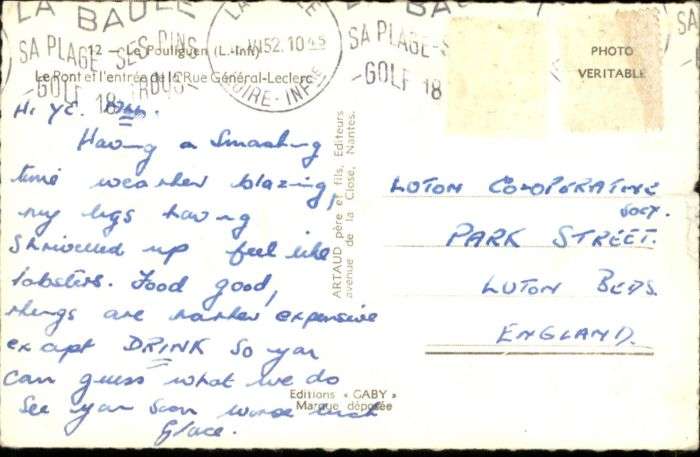 LA BAULE
SA PLAGE - SES PINS
GOLF 18 TROUS
LA BAULE
VI52. 1045
LOIRE-INFRE
LA BAULE
SA PLAGE-S
GOLF 18
12 — Le Pouliguen (L.-Inf.)
Le Pont et l'entrée de la Rue Général-Leclerc
PHOTO
VERITABLE
Hi YE.
Having a Smashing
time weather blazing,
my legs having
Shrivelled up feel like
lobsters. Food good,
things are rather expensive
except DRINK So you
can guess what we do
See you soon worse luck
Grace.
ARTAUD père et fils, Editeurs
avenue de la Close, Nantes.
Editions « GABY »
Marque déposée
LUTON CO-OPERATIVE
SOCY.
PARK STREET.
LUTON BEDS.
ENGLAND.